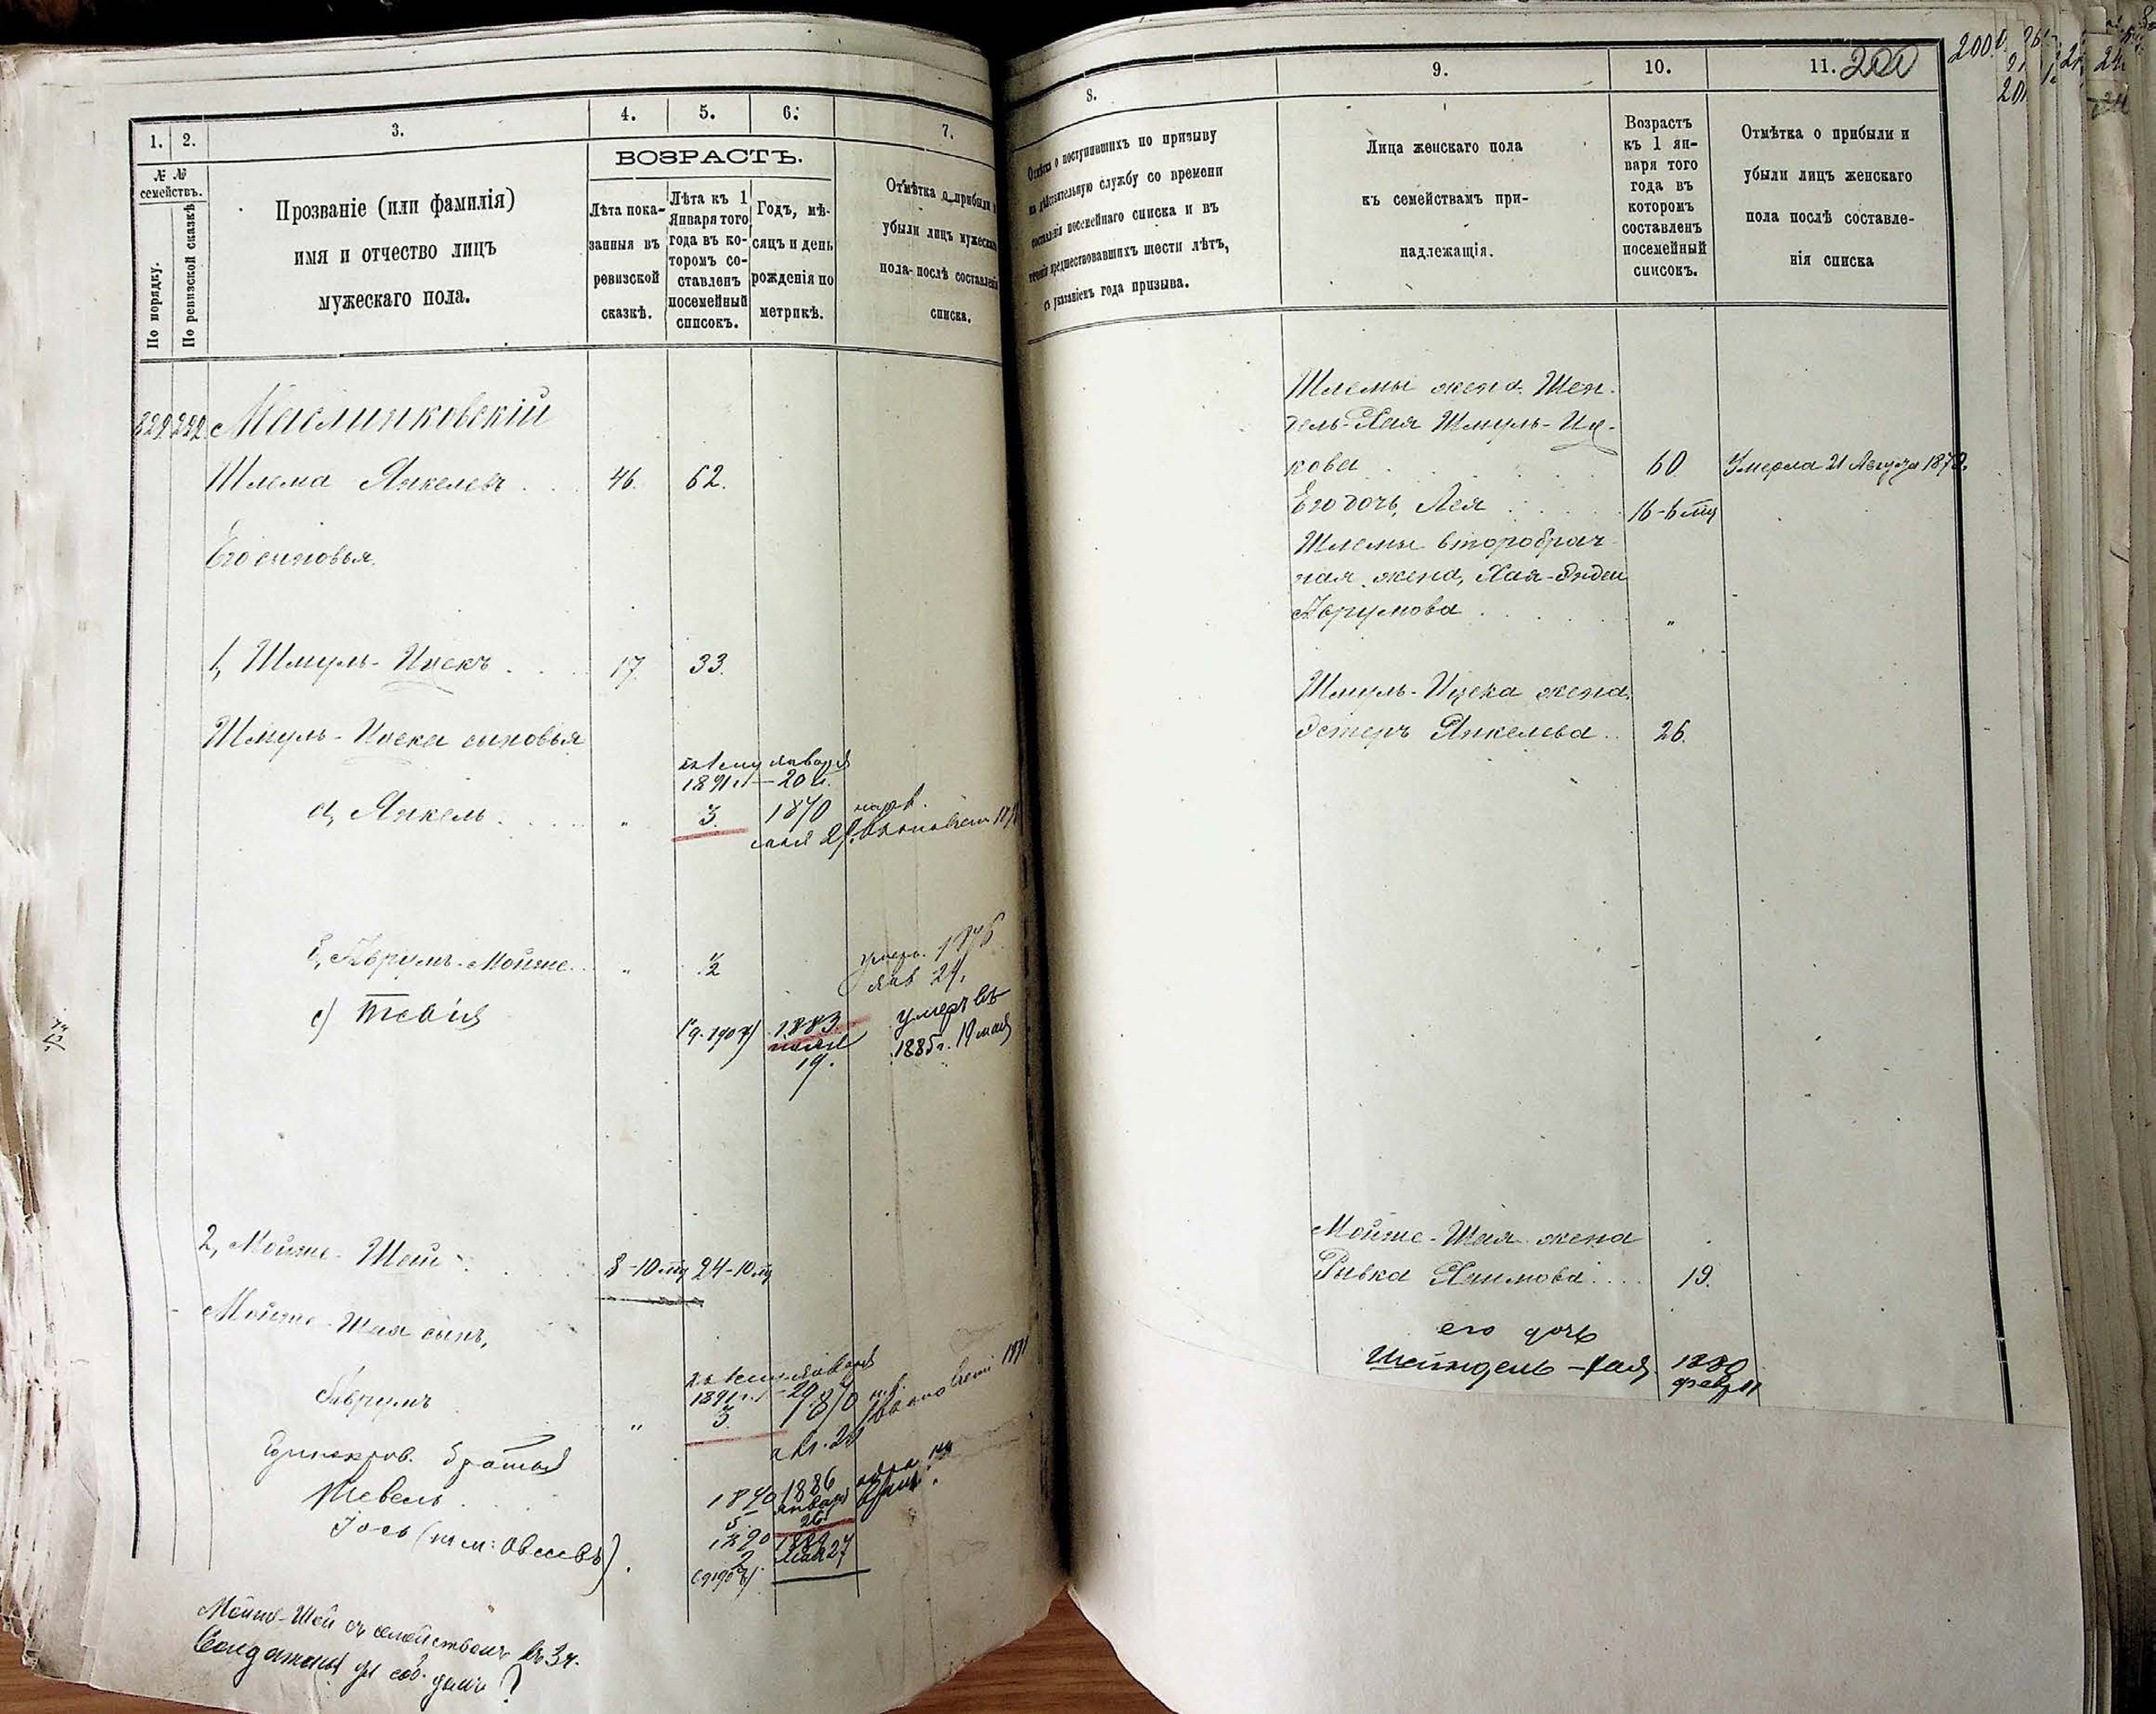 1.
2.
3.
4.
5.
6.
7.
№ №
семействъ.
По порядку.
По ревизской сказкѣ
Прозваніе (или фамилія)
имя и отчество лицъ
мужескаго пола.
ВОЗРАСТЪ.
Лѣта пока-
занныя въ
ревизской
сказкѣ.
Лѣта къ 1
Января того
года въ ко-
торомъ со-
ставленъ
посемейный
списокъ.
Годъ, мѣ-
сяцъ и день
рожденія по
метрикѣ.
Отмѣтка о прибыли и
убыли лицъ мужескаго
пола послѣ составленія
списка.
222 Маслинковскій
Шлема Янкелевъ 46. 62.
Его сыновья
1, Шмуль-Ицекъ 17. 33.
Шмуль-Ицека сыновья
къ 1му января
1891 г. — 20 л.
а, Янкель „ 3. 1870
мая 25.
б, Аврумъ-Мойше „ 2 умеръ 1876
янв 24.
с) Тевія 1883 умеръ въ
іюля 1885 г. 19 мая
19.
2, Мойше-Шей 8-10 мц 24-10 мц
Мойше-Шая сынъ,
къ 1му января
1891 г. - 20
Аврумъ „ 3. 1870
братья
Тевель 1890 1886
5 января
26
Іось 1890 1888
2 мая 27
Мойше-Шей съ семействомъ въ 3 ч.
8.
9.
10.
11. 200
200
Отмѣтка о поступившихъ по призыву
на дѣйствительную службу со времени
составленія посемейнаго списка и въ
теченіи предшествовавшихъ шести лѣтъ,
съ указаніемъ года призыва.
Лица женскаго пола
къ семействамъ при-
надлежащія.
Возрастъ
къ 1 ян-
варя того
года въ
которомъ
составленъ
посемейный
списокъ.
Отмѣтка о прибыли и
убыли лицъ женскаго
пола послѣ составле-
нія списка
Шлемы жена Шен-
дель-Хая Шмуль-Иц-
кова 60. Умерла 21 Августа
Его дочь, Лея 16-6 мц
Шлемы второбрач-
ная жена, Хая-
Аврумова „
Шмуль-Ицека жена
Эстеръ Янкелева 26.
Мойше-Шая жена
Ривка Хаимова 19.
его дочь
Шейндель-Хая 1880
февр 11